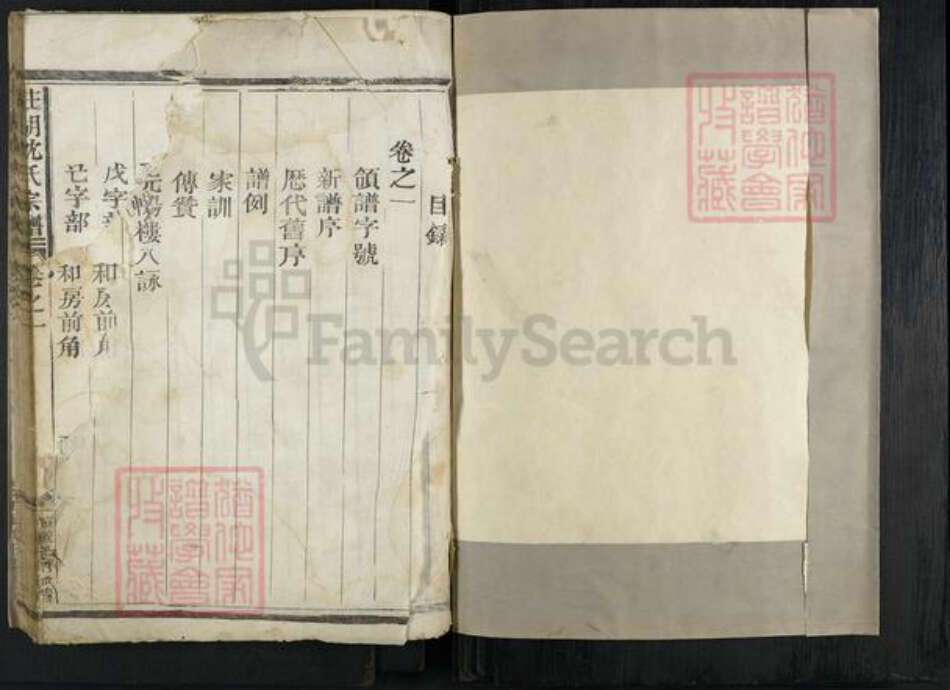 目錄
卷之一
領譜字號
新譜序
歷代舊序
譜例
家訓
傳贊
樓八詠
戊字 和房前角
已字部 和房前角
氏宗譜 卷之一
FamilySearch
猶他家譜學會收藏
猶他家譜學會收藏